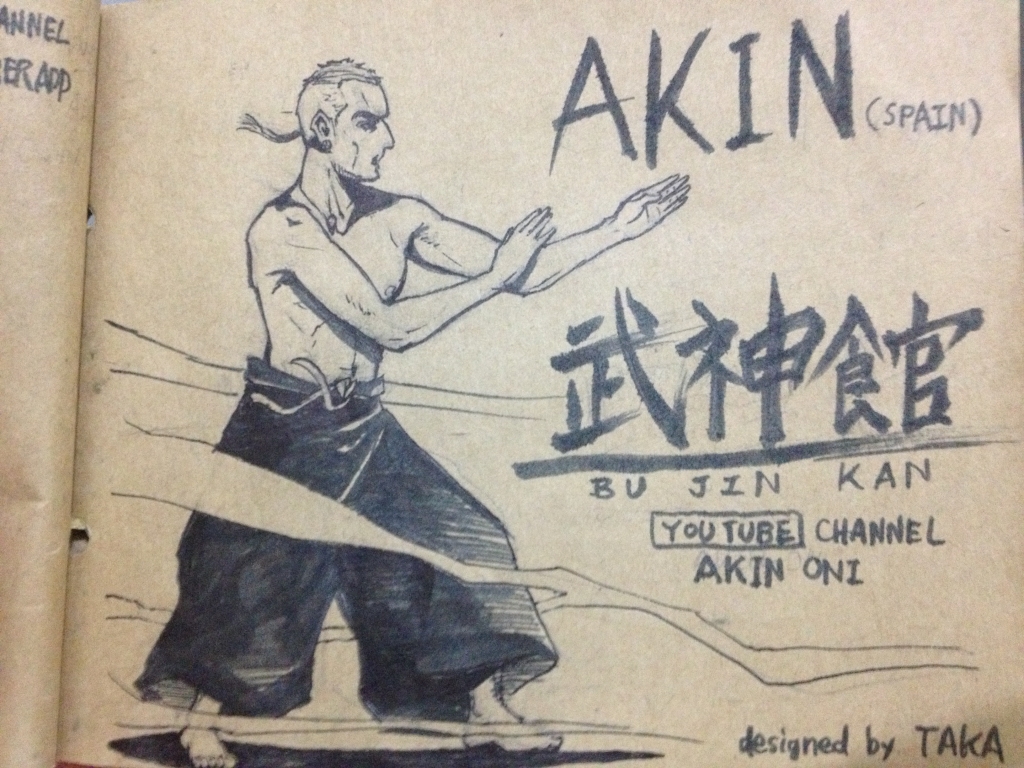 ANNEL
ERAPP
AKIN (SPAIN)
武神館
BU JIN KAN
YOUTUBE CHANNEL
AKIN ONI
designed by TAKA